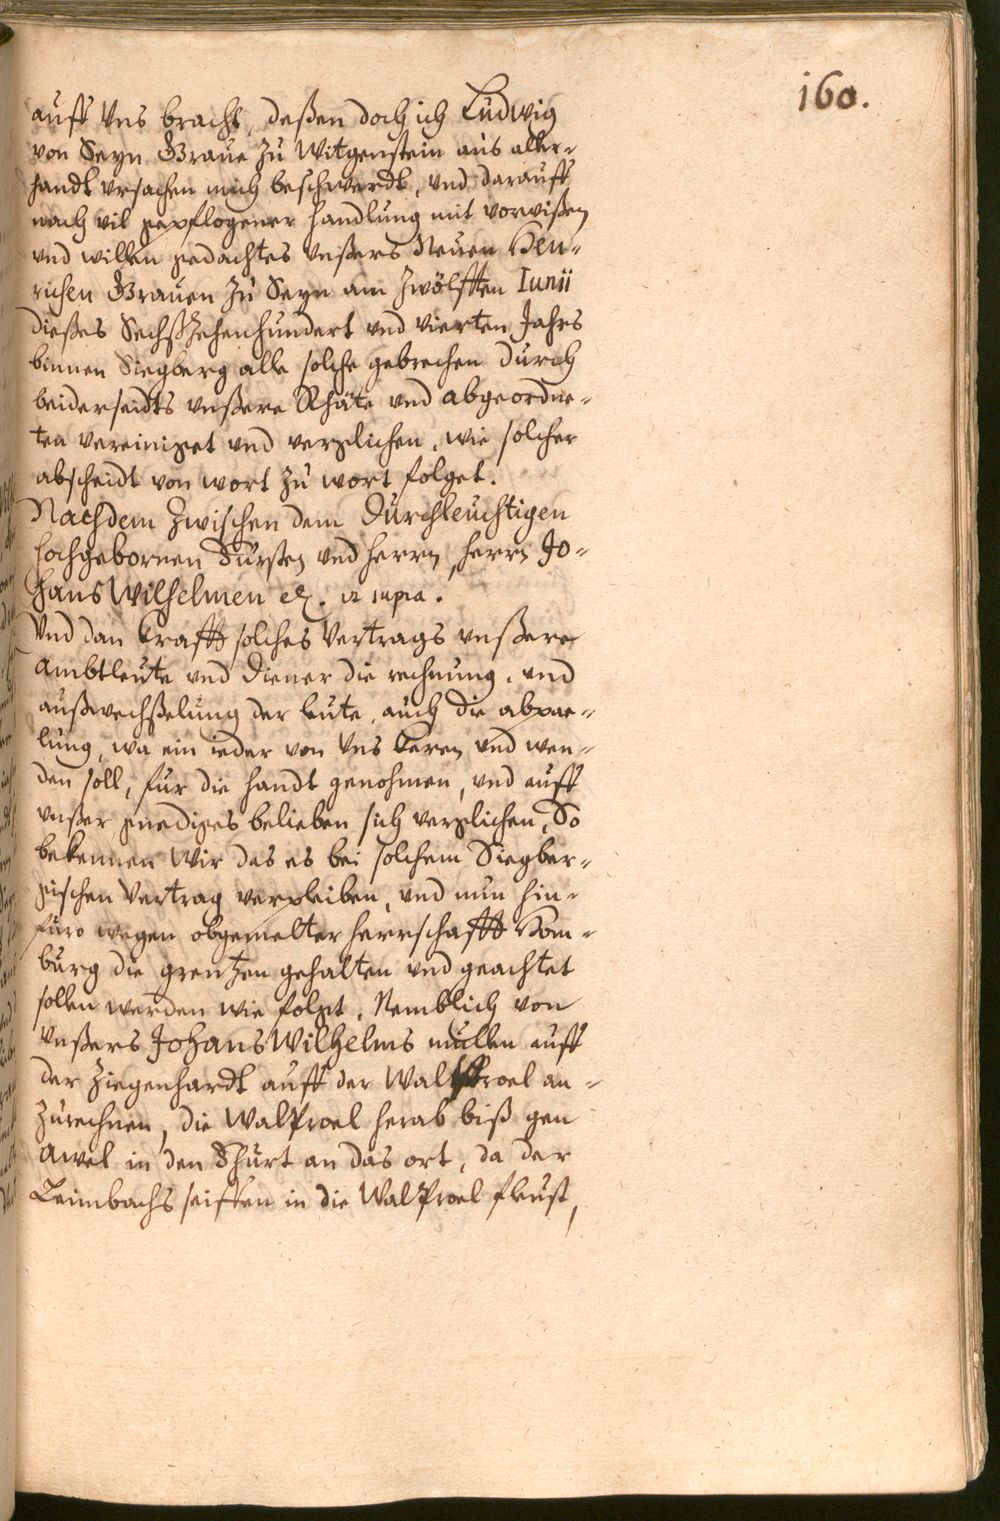 160.
auff Vns bracht, deßen doch ich Ludwig
von Seyn Graue zu Witgenstein aus aller-
handt vrsachen mich beschwerdt, vnd darauff
nach vil gepflogener handlung mit vorwißen
vnd willen gedachtes vnßers Neuen Hen-
richen Grauen zu Seyn am zwölfften Iunii
dießes Sechßzehenhundert vnd vierten Jahrs
binnen Siegberg alle solche gebrechen durch
beiderseidts vnßere Rhäte vnd abgeordne-
ten vereiniget vnd verglichen, wie solcher
abscheidt von wort zu wort folget.
Nachdem zwischen dem Durchleuchtigen
hochgebornen Fürsten vnd herrn, herrn Jo-
hans Wilhelmen etc. vt supra.
Vnd dan krafft solches Vertrags vnßere
Ambtleute vnd Diener die rechnung, vnd
außwechßelung der leute, auch die abpae-
lung, wa ein ieder von Vns keren vnd wen-
den soll, für die handt genohmen, vnd auff
vnßer gnediges belieben sich verglichen, So
bekennen Wir das es bei solchem Siegber-
gischen Vertrag verpleiben, vnd nun hin-
füro wegen obgemelter herrschafft Hom-
burg die grentzen gehalten vnd geachtet
sollen werden wie folgt, Nemblich von
vnßers Johans Wilhelms müllen auff
der Ziegenhardt auff der Walproel an-
zurechnen, die Walproel herab biß gen
Awel in den Fhurt an das ort, da der
Leimbachs seiffen in die Walproel fleust,